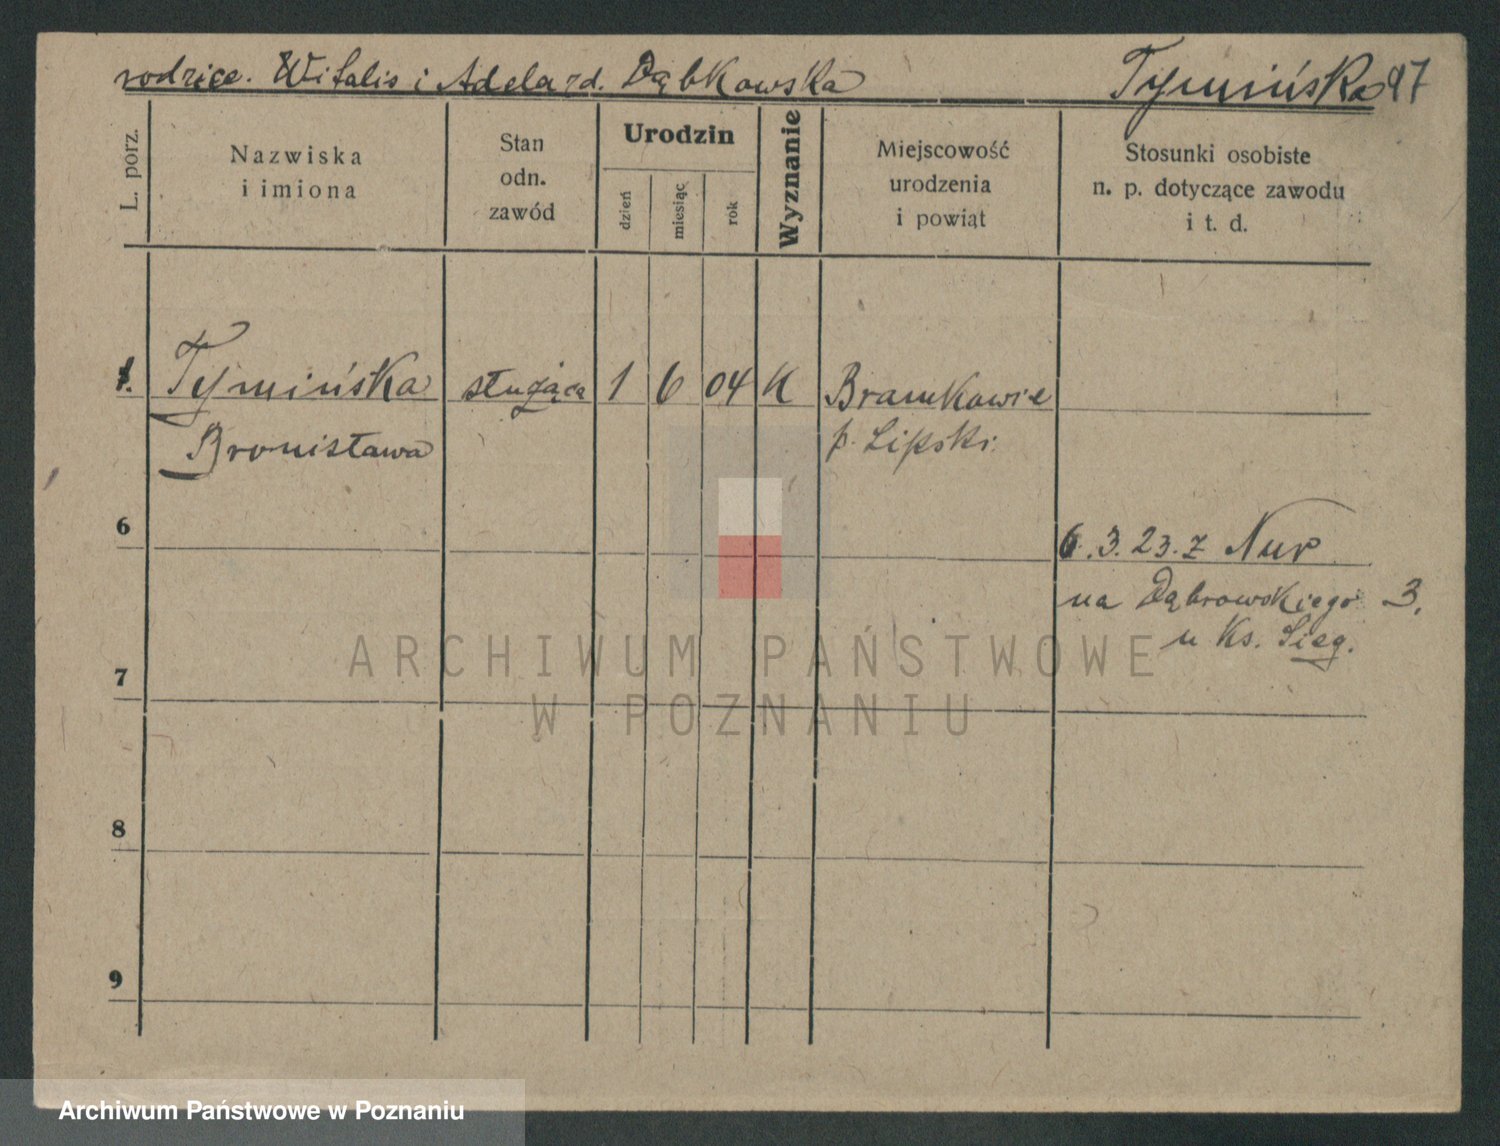 rodzice. Witalis i Adela zd. Dąbkowska
Tymińska 97
L. porz.
Nazwiska
i imiona
Stan
odn.
zawód
Urodzin
dzień
miesiąc
rok
Wyznanie
Miejscowość
urodzenia
i powiąt
Stosunki osobiste
n. p. dotyczące zawodu
i t. d.
Tymińska służąca 1 6 04 K
Bronisława p. Lipski.
6
6.3.23. z Nur
na Dąbrowskiego 3.
u Ks. Sieg.
7
8
9
ARCHIWUM PAŃSTWOWE
W POZNANIU
Archiwum Państwowe w Poznaniu